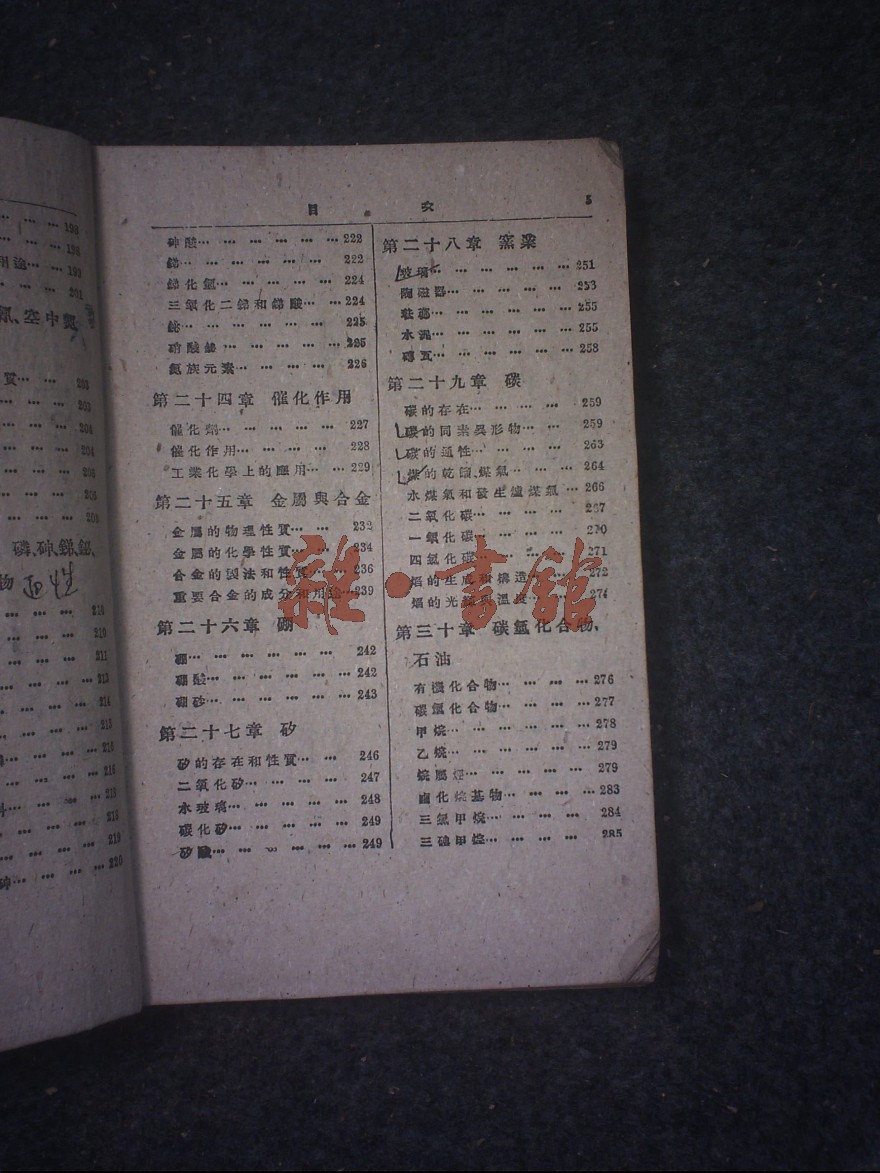 198
198
用途… … … 199
201
空中氮
質… … … 203
203
204
204
206
206
208
磷、砷、銻、鉍、
物
210
210
211
213
214
215
216
216
218
218
219
砷… … … 220
目 次 5
砷酸… … … … … … 222
銻… … … … … … 222
銻化氫… … … … … 224
三氧化二銻和銻酸… … 224
鉍… … … … … … 225
硝酸鉍… … … … … 225
氮族元素… … … … 226
第二十四章 催化作用
催化劑… … … … … 227
催化作用… … … … 228
工業化學上的應用… … 229
第二十五章 金屬與合金
金屬的物理性質… … 232
金屬的化學性質… … 234
合金的製法和性質… … 236
重要合金的成分和用途… 239
第二十六章 硼
硼… … … … … … 242
硼酸… … … … … … 242
硼砂… … … … … … 243
第二十七章 矽
矽的存在和性質… … … 246
二氧化矽… … … … 247
水玻璃… … … … … 248
碳化矽… … … … … 249
矽酸… … … … … … 249
第二十八章 窯業
玻璃… … … … … … 251
陶磁器… … … … … 253
琺瑯… … … … … … 255
水泥… … … … … … 255
磚瓦… … … … … … 258
第二十九章 碳
碳的存在… … … … 259
碳的同素異形物… … 259
碳的通性… … … … 263
煤的乾餾、煤氣… … … 264
水煤氣和發生爐煤氣… 266
二氧化碳… … … … 267
一氧化碳… … … … 270
四氯化碳… … … … 271
焰的生成和構造… … 272
焰的光輝與溫度… … 274
第三十章 碳氫化合物、
石油
有機化合物… … … … 276
碳氫化合物… … … … 277
甲烷… … … … … … 278
乙烷… … … … … … 279
烷屬烴… … … … … 279
鹵化烷基物… … … … 283
三氯甲烷… … … … 284
三碘甲烷… … … … 285
雜·書館